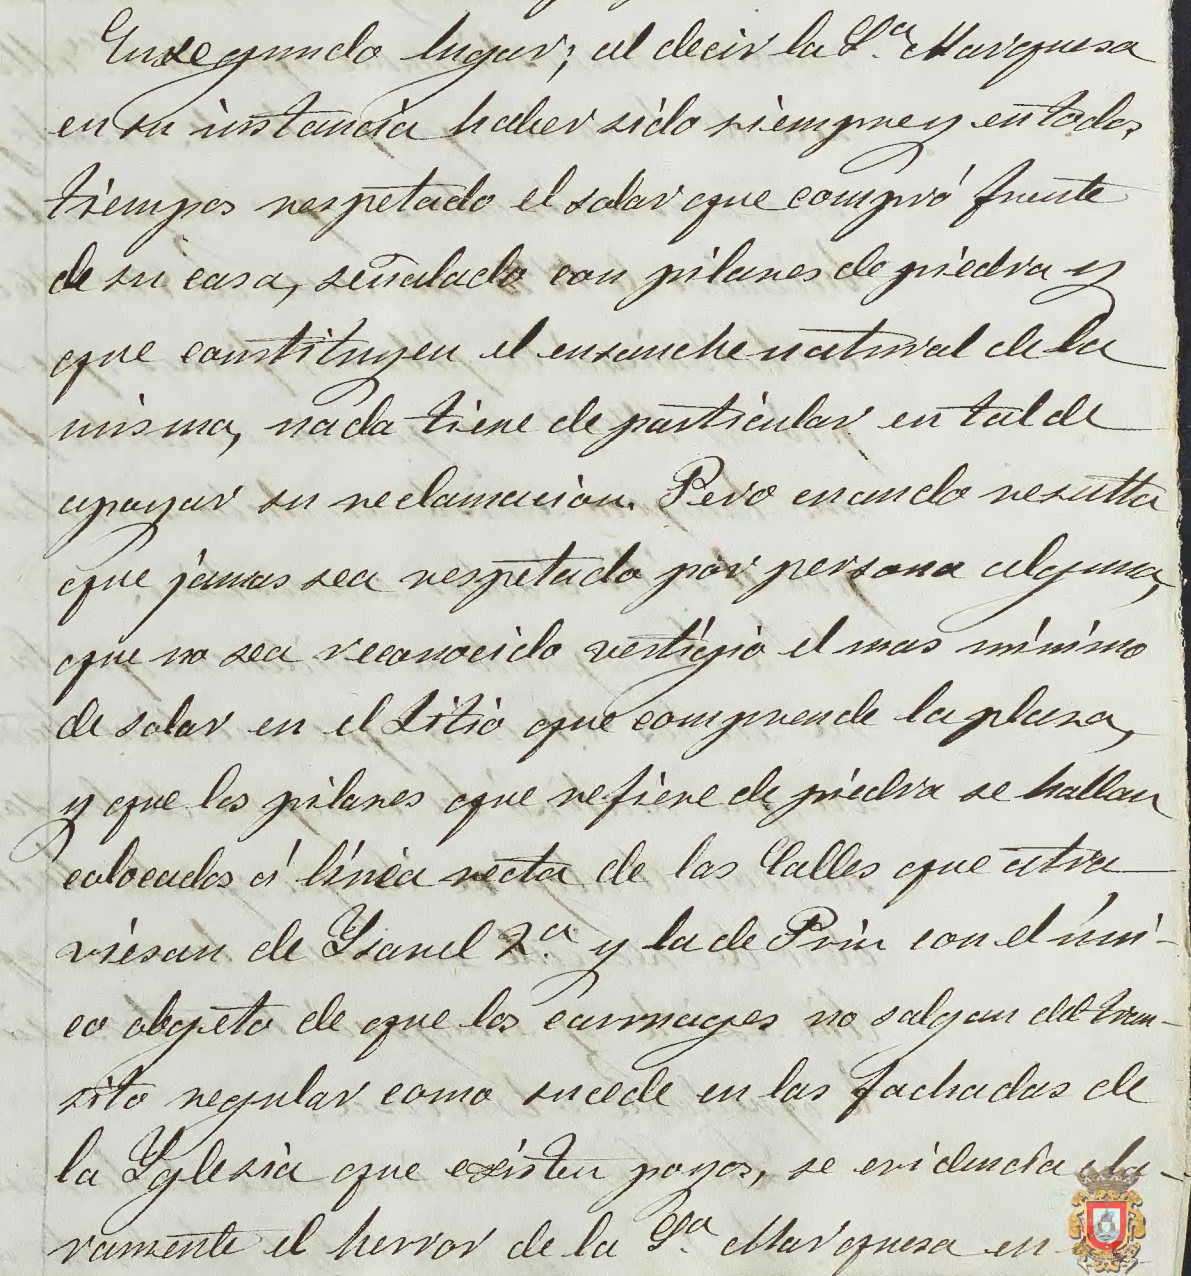 En segundo lugar; al decir la Sª. Marquesa
en su instancia haber sido siempre y en todos
tiempos respetado el solar que compró frente
de su casa, señalado con pilares de piedra y
que constituyen el ensanche natural de la
misma, nada tiene de particular en tal de
apoyar su reclamacion. Pero cuando resulta
que jamas sea respetado por persona alguna,
que no sea reconocido vestigio el mas minimo
de solar en el Sitio que comprende la plaza,
y que los pilares que refiere de piedra se hallan
colocados á linea recta de las Calles que atra
viesan de Ysavel 2.ª y la de Prin con el úni-
co obgeto de que los carruages no salgan del tran-
sito regular como sucede en las fachadas de
la Yglesia que existen poyos, se evidencia cla-
ramente el herror de la Sª. Marquesa en